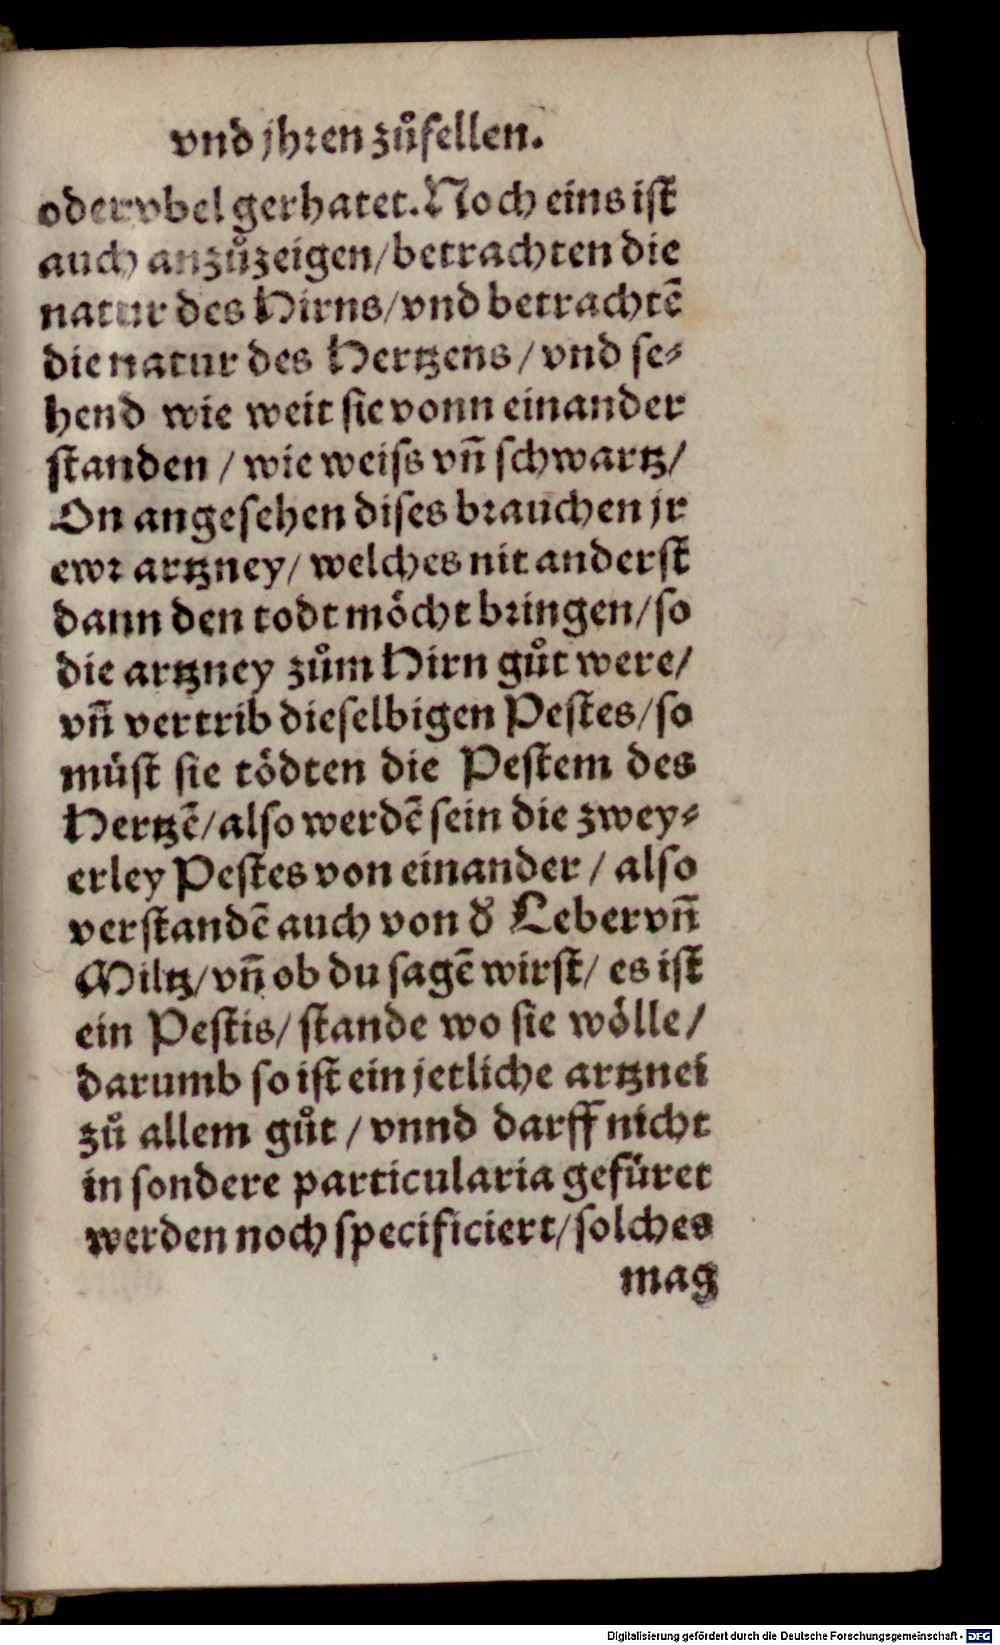 vnd jhren zůfellen.
oder vbel gerhatet. Noch eins ist
auch anzůzeigen/betrachten die
natur des Hirns/vnd betrachtẽ
die natur des Hertzens/vnd se⸗
hend wie weit sie vonn einander
standen/wie weiss vñ schwartz/
On angesehen dises brauchen jr
ewr artzney/welches nit anderst
dann den todt möcht bringen/so
die artzney zům Hirn gůt were/
vñ vertrib dieselbigen Pestes/so
müst sie tödten die Pestem des
Hertzẽ/also werdẽ sein die zwey⸗
erley Pestes von einander/also
verstandẽ auch von d̾ Leber vñ
Miltz/vñ ob du sagẽ wirst/es ist
ein Pestis/stande wo sie wölle/
darumb so ist ein jetliche artznei
zů allem gůt/vnnd darff nicht
in sondere particularia gefüret
werden noch specificiert/solches
mag
Digitalisierung gefördert durch die Deutsche Forschungsgemeinschaft - DFG